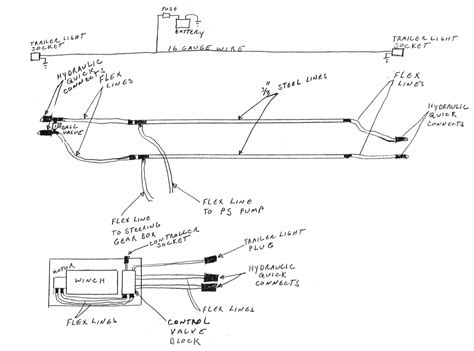 FUSE
BATTERY
TRAILER LIGHT
SOCKET
16 GAUGE WIRE
TRAILER LIGHT
SOCKET
HYDRAULIC
QUICK
CONNECTS
FLEX
LINES
3/8"
STEEL LINES
FLEX
LINES
HYDRAULIC
QUICK
CONNECTS
BALL
VALVE
FLEX LINE
TO STEERING
GEAR BOX
FLEX LINE
TO PS PUMP
CONTROLLER
SOCKET
TRAILER LIGHT
PLUG
MOTOR
WINCH
HYDRAULIC
QUICK
CONNECTS
FLEX LINES
FLEX LINES
CONTROL
VALVE
BLOCK